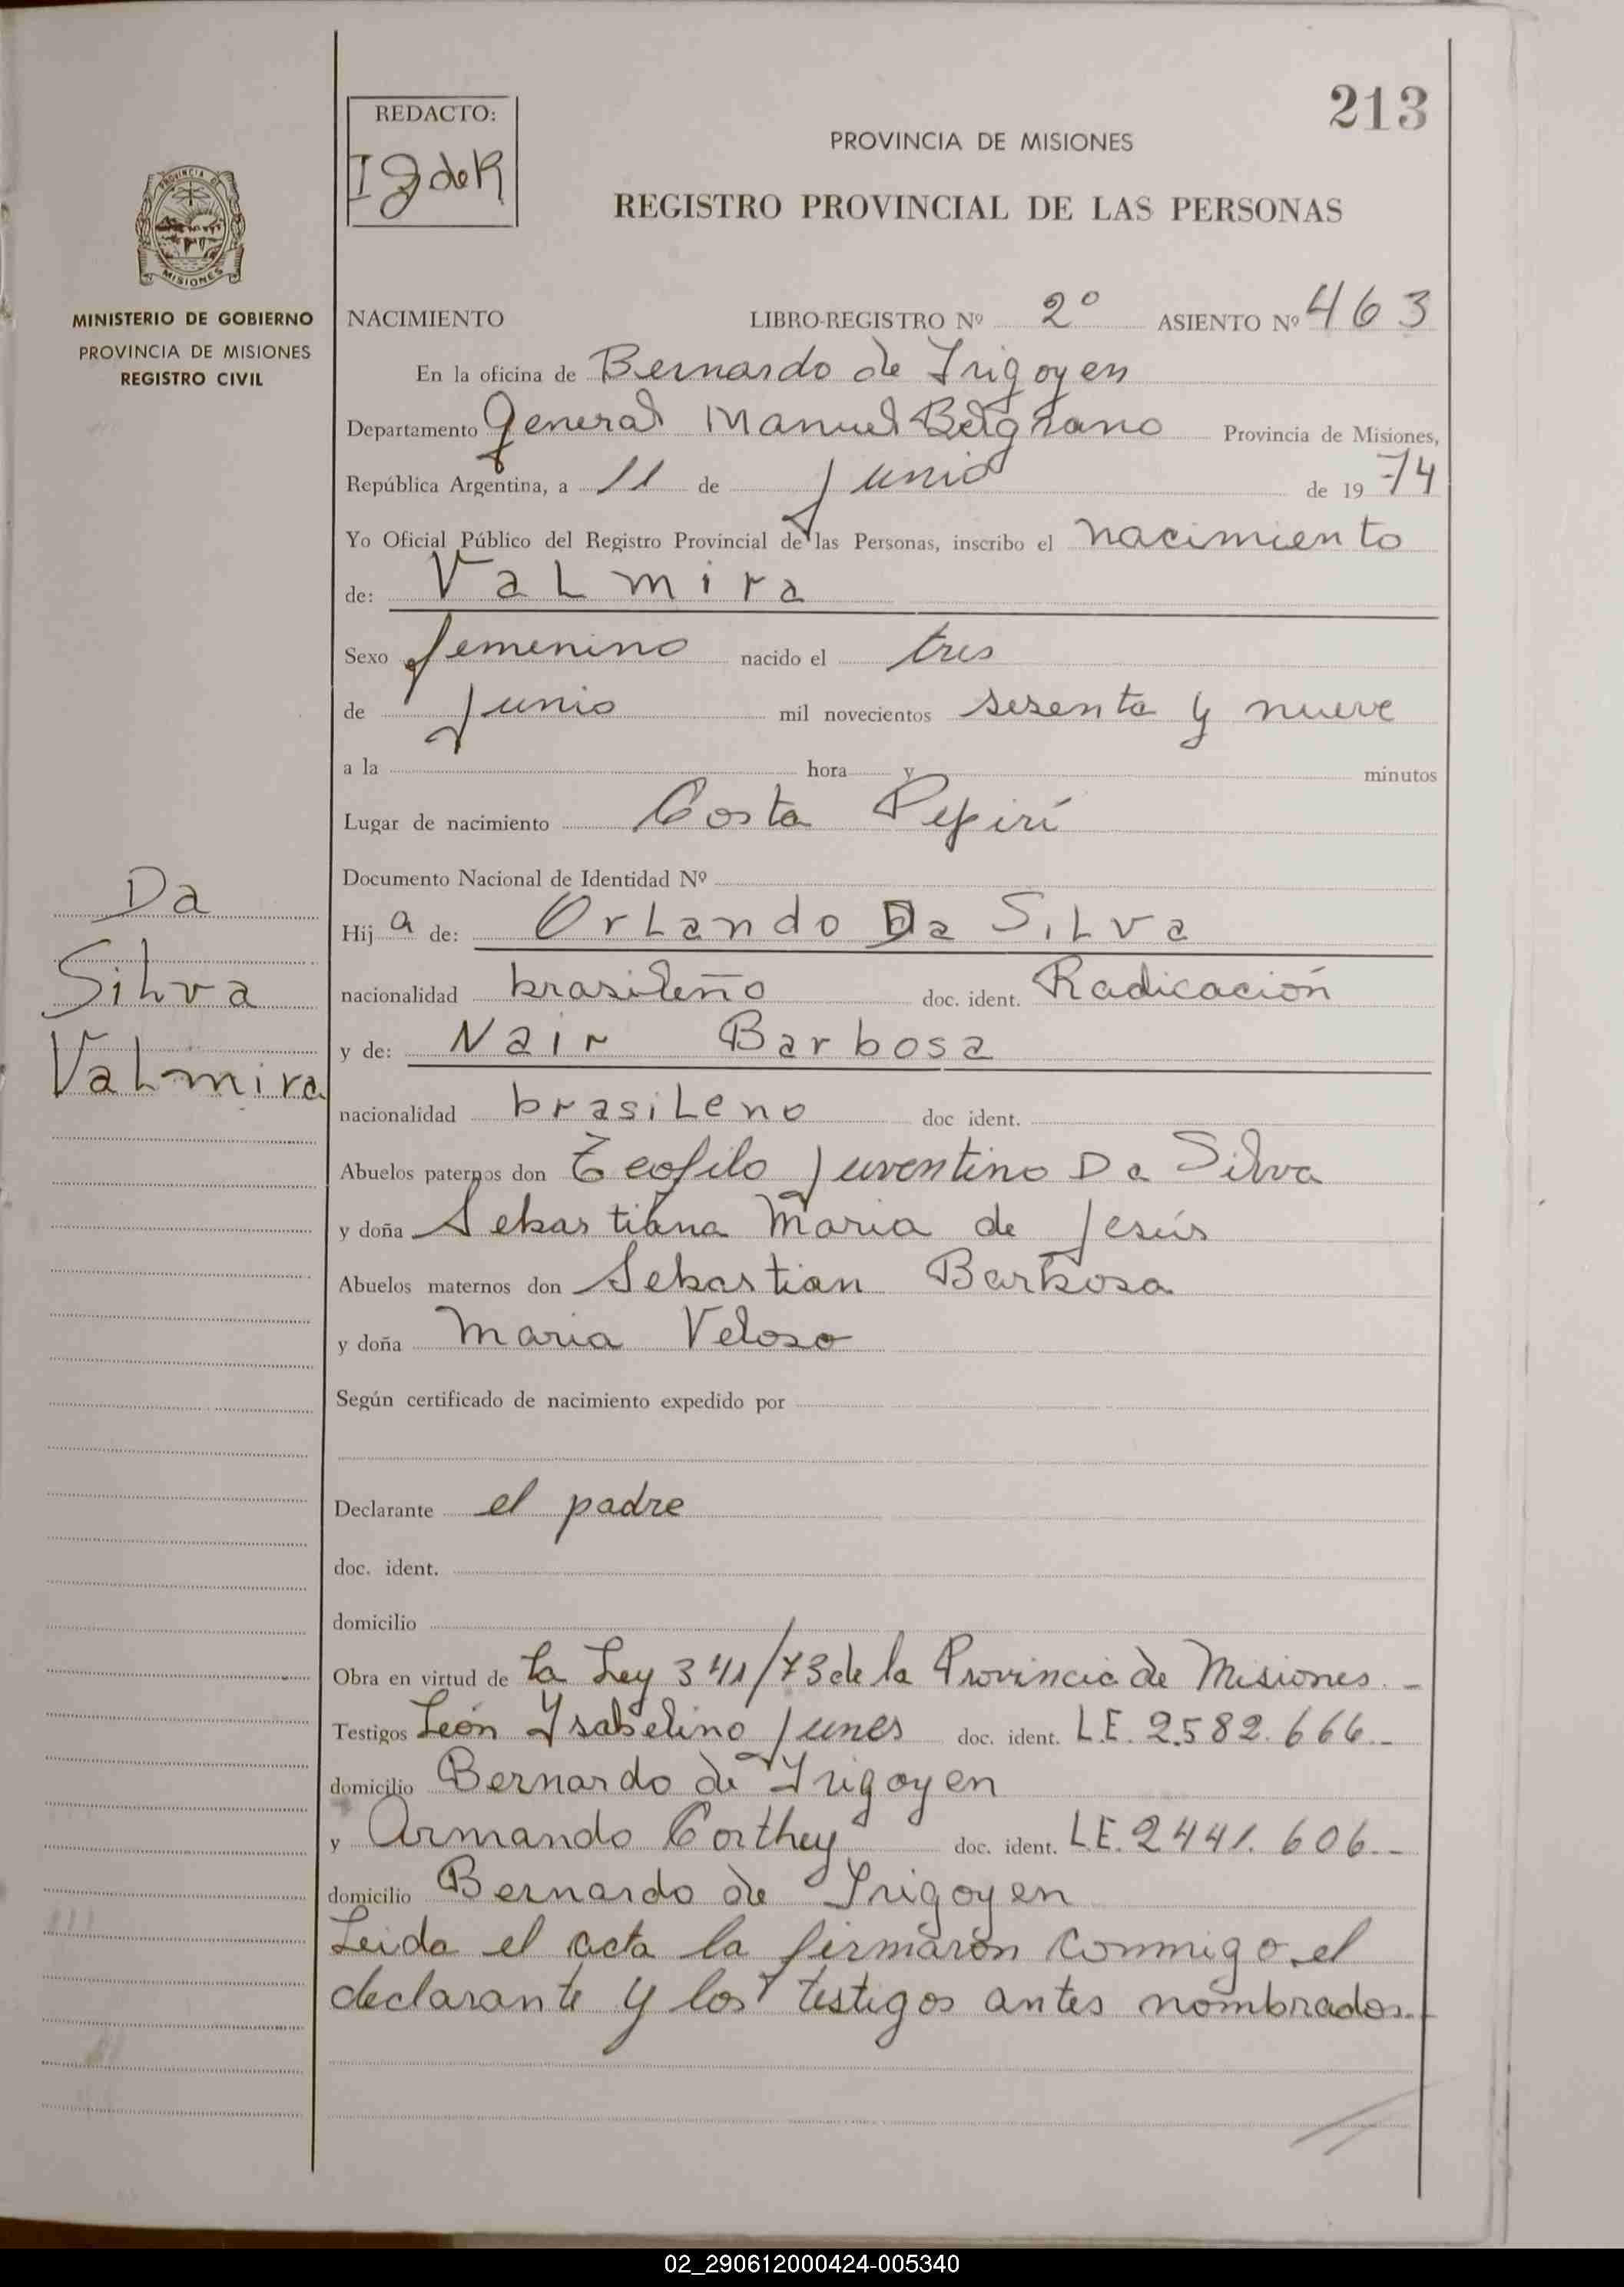 213
REDACTO:
I G de R
PROVINCIA DE MISIONES
REGISTRO PROVINCIAL DE LAS PERSONAS
PROVINCIA DE
MISIONES
MINISTERIO DE GOBIERNO
PROVINCIA DE MISIONES
REGISTRO CIVIL
NACIMIENTO LIBRO-REGISTRO Nº 2º ASIENTO Nº 463
En la oficina de Bernardo de Irigoyen
Departamento General Manuel Belgrano Provincia de Misiones,
República Argentina, a 11 de junio de 19 74
Yo Oficial Público del Registro Provincial de las Personas, inscribo el nacimiento
de: Valmira
Sexo femenino nacido el tres
de junio mil novecientos sesenta y nueve
a la hora y minutos
Lugar de nacimiento Costa Pepirí
Documento Nacional de Identidad Nº
Da
Silva
Valmira
Hij a de: Orlando Da Silva
nacionalidad brasileño doc. ident. Radicación
y de: Nair Barbosa
nacionalidad brasileno doc ident.
Abuelos paternos don Teofilo Juventino Da Silva
y doña Sebastiana Maria de Jesús
Abuelos maternos don Sebastian Barbosa
y doña Maria Veloso
Según certificado de nacimiento expedido por
Declarante el padre
doc. ident.
domicilio
Obra en virtud de la Ley 341/73 de la Provincia de Misiones.-
Testigos León Ysabelino Junes doc. ident. L.E. 2.582.666.-
domicilio Bernardo de Irigoyen
y Armando Corthey doc. ident. L.E. 2441.606.-
domicilio Bernardo de Irigoyen
Leida el acta la firmarón conmigo el
declarante y los testigos antes nombrados.-
02_290612000424-005340